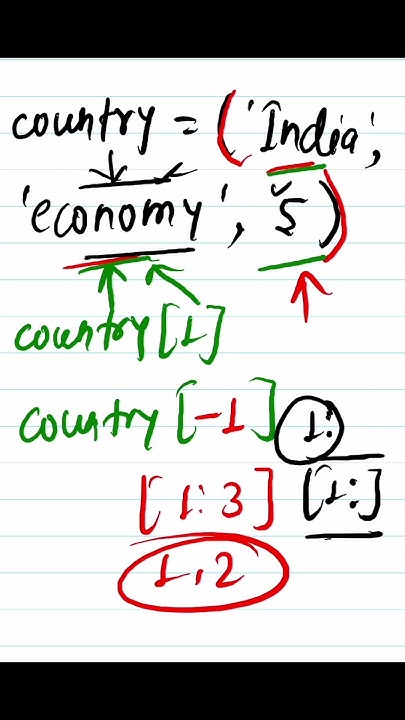 country = ('India',
'economy', 5)
country[1]
country[-1] 1:
[1:3] [1:]
1,2